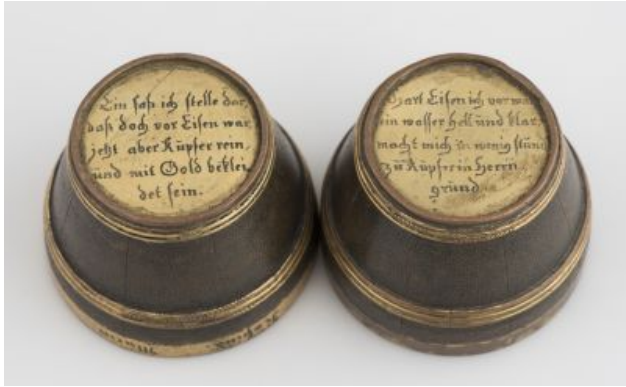 Ein faß ich stelle dar,
daß doch vor Eisen war
jetzt aber Küpfer rein
und mit Gold beklei,
det sein.
Hart Eisen ich vor war
ein wasser hell und klar
macht mich in wenig stünd
zü Küpfer in Herrn
gründ